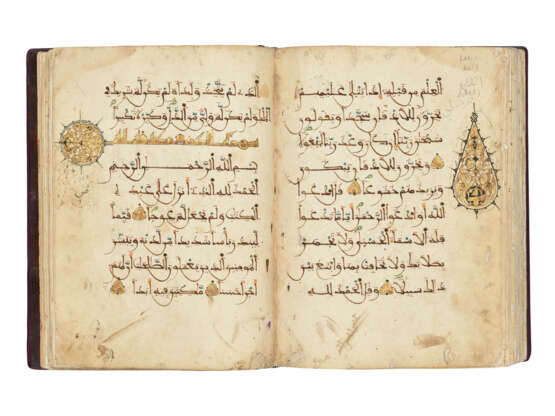 العلم من قبله إذا يتلى عليهم
يخرون للأذقان سجدا ويقولون
سبحن ربنا إن كان وعد ربنا لمفعولا
ويخرون للأذقان يبكون
ويزيدهم خشوعا قل ادعوا
الله أو ادعوا الرحمن أيا ما تدعوا
فله الأسماء الحسنى ولا تجهر
بصلاتك ولا تخافت بها وابتغ بين
ذلك سبيلا وقل الحمد لله
الذي لم يتخذ ولدا ولم يكن له شريك في
الملك ولم يكن له ولي من الذل وكبره تكبيرا
بسم الله الرحمن الرحيم
الحمد لله الذي أنزل على عبده
الكتب ولم يجعل له عوجا قيما
لينذر بأسا شديدا من لدنه ويبشر
المومنين الذين يعملون الصلحت أن لهم
أجرا حسنا مكثين فيه أبدا